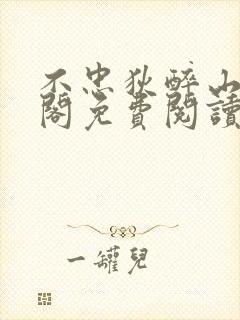 不忠狄醉山
閣免費閱讀
一罐兒